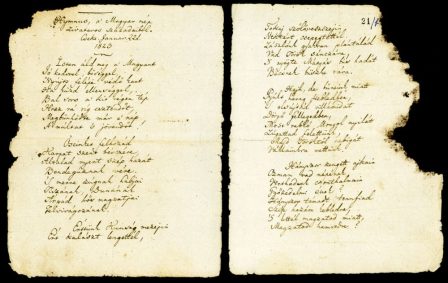 Hymnus, a' Magyar nép
zivataros századaiból.
Cseke, Január 22d
1823
Isten áldd meg a' Magyart
Jó kedvvel, bőséggel,
Nyújts feléje védő kart
Ha küzd ellenséggel,
Bal sors a' kit régen tép
Hozz rá víg esztendőt,
Megbűnhödte már a' nép
A' múltat 's jövendőt!
Őseinket felhozád
Kárpát szent bérczére,
Általad nyert szép hazát
Bendegúznak vére.
'S merre zúgnak habjai
Tiszának, Dunának,
Árpád hős magzatjai
Felvirágozának.
Értünk Kunság mezein
Ért kalászt lengettél,
21
Tokaj szőlővesszein
Nektárt csepegtettél.
Zászlónk gyakran plántálád
Vad török sánczára,
'S nyögte Mátyás bús hadát
Bécsnek büszke vára.
Hajh, de bűneink miatt
Gyúlt harag kebledben,
'S elsújtád villámidat
Dörgő fellegedben,
Most rabló Mongol nyilát
Zúgattad felettünk,
Majd töröktől rabigát
Vállainkra vettünk.
Hányszor zengett ajkain
Ozman vad népének
Vert hadunk csonthalmain
Győzedelmi ének!
Hányszor támadt tenfiad
Szép hazám kebledre,
'S lettél magzatod miatt
Magzatod hamvedre?